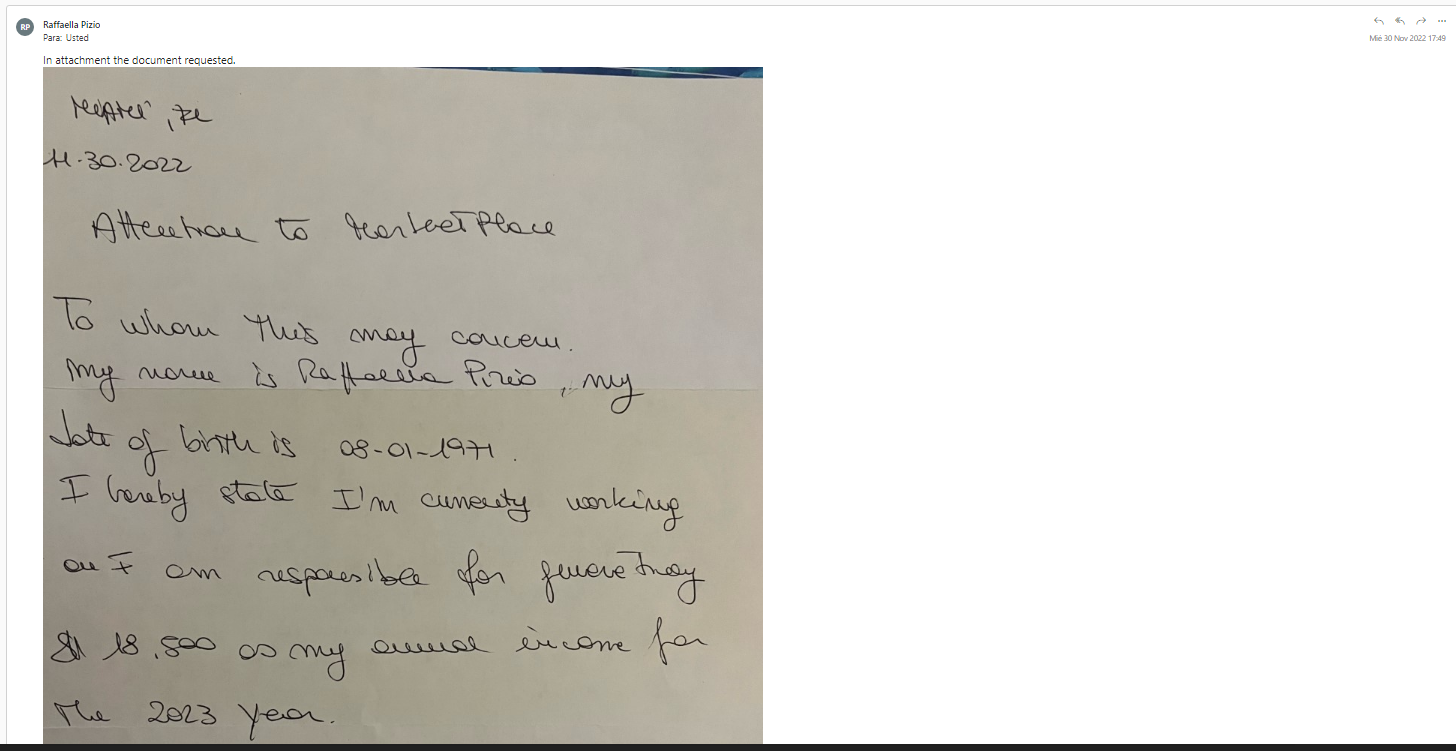 RP
Raffaella Pizio
Para: Usted
Mié 30 Nov 2022 17:49
In attachment the document requested.
Miami, FL
11.30.2022
Attention to MarketPlace
To whom this may concern.
My name is Raffaella Pizio, my
date of birth is 08-01-1971.
I hereby state I'm currently working
I am responsible for
$ 18,800 as my annual income for
the 2023 year.